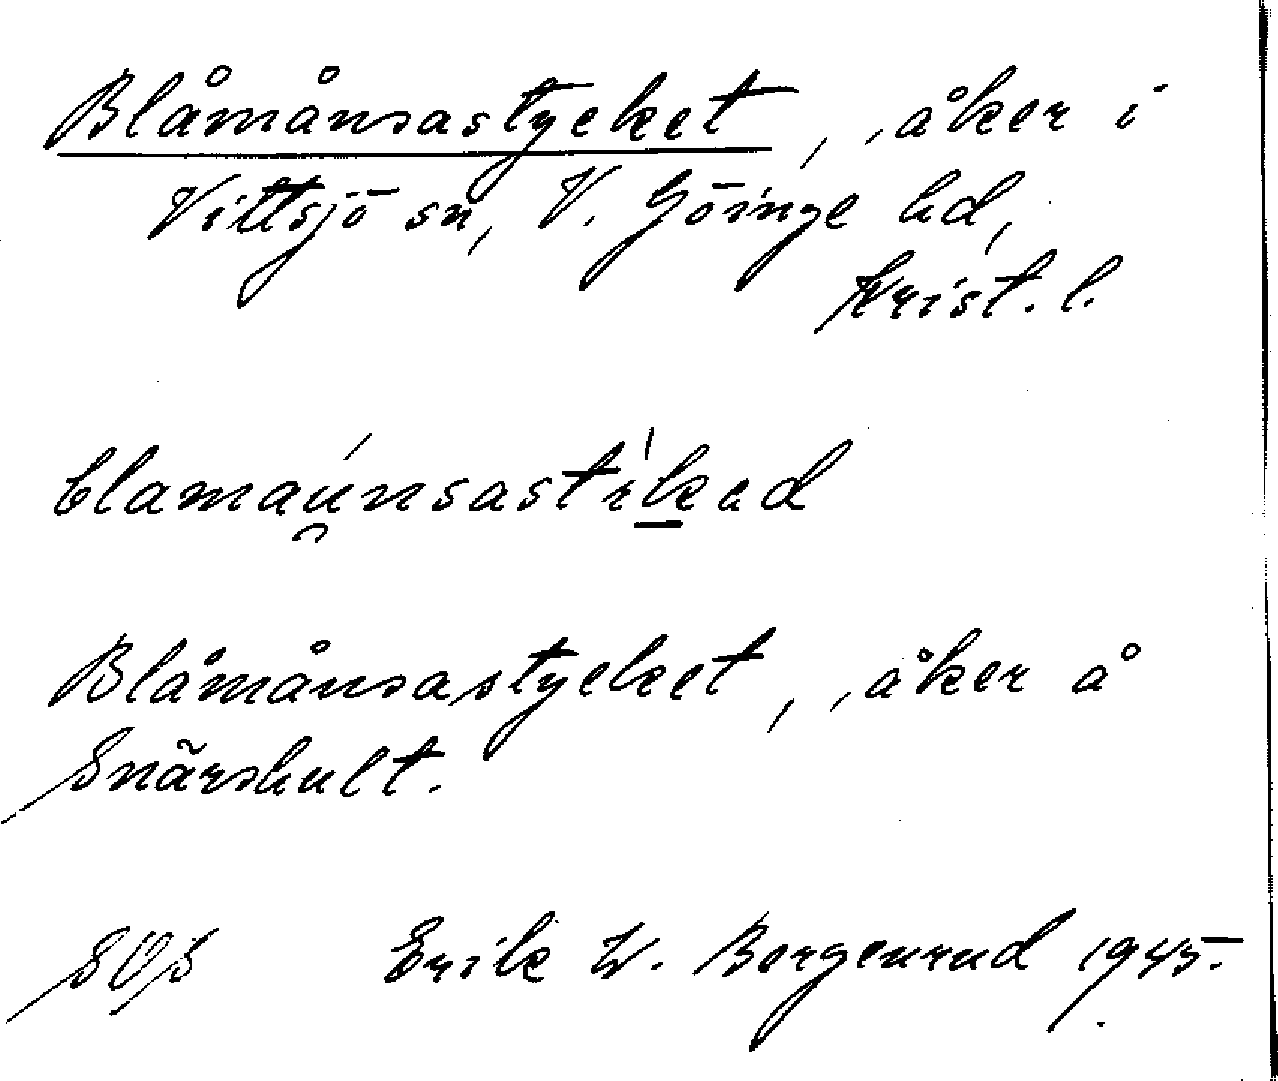 Blåmånsastycket, åker i
Vittsjö sn, V. Göinge hd,
Krist. l.
blamau̯nsastikad
Blåmånsastycket, åker å
Snärshult.
Erik W. Borgenrud 1945.